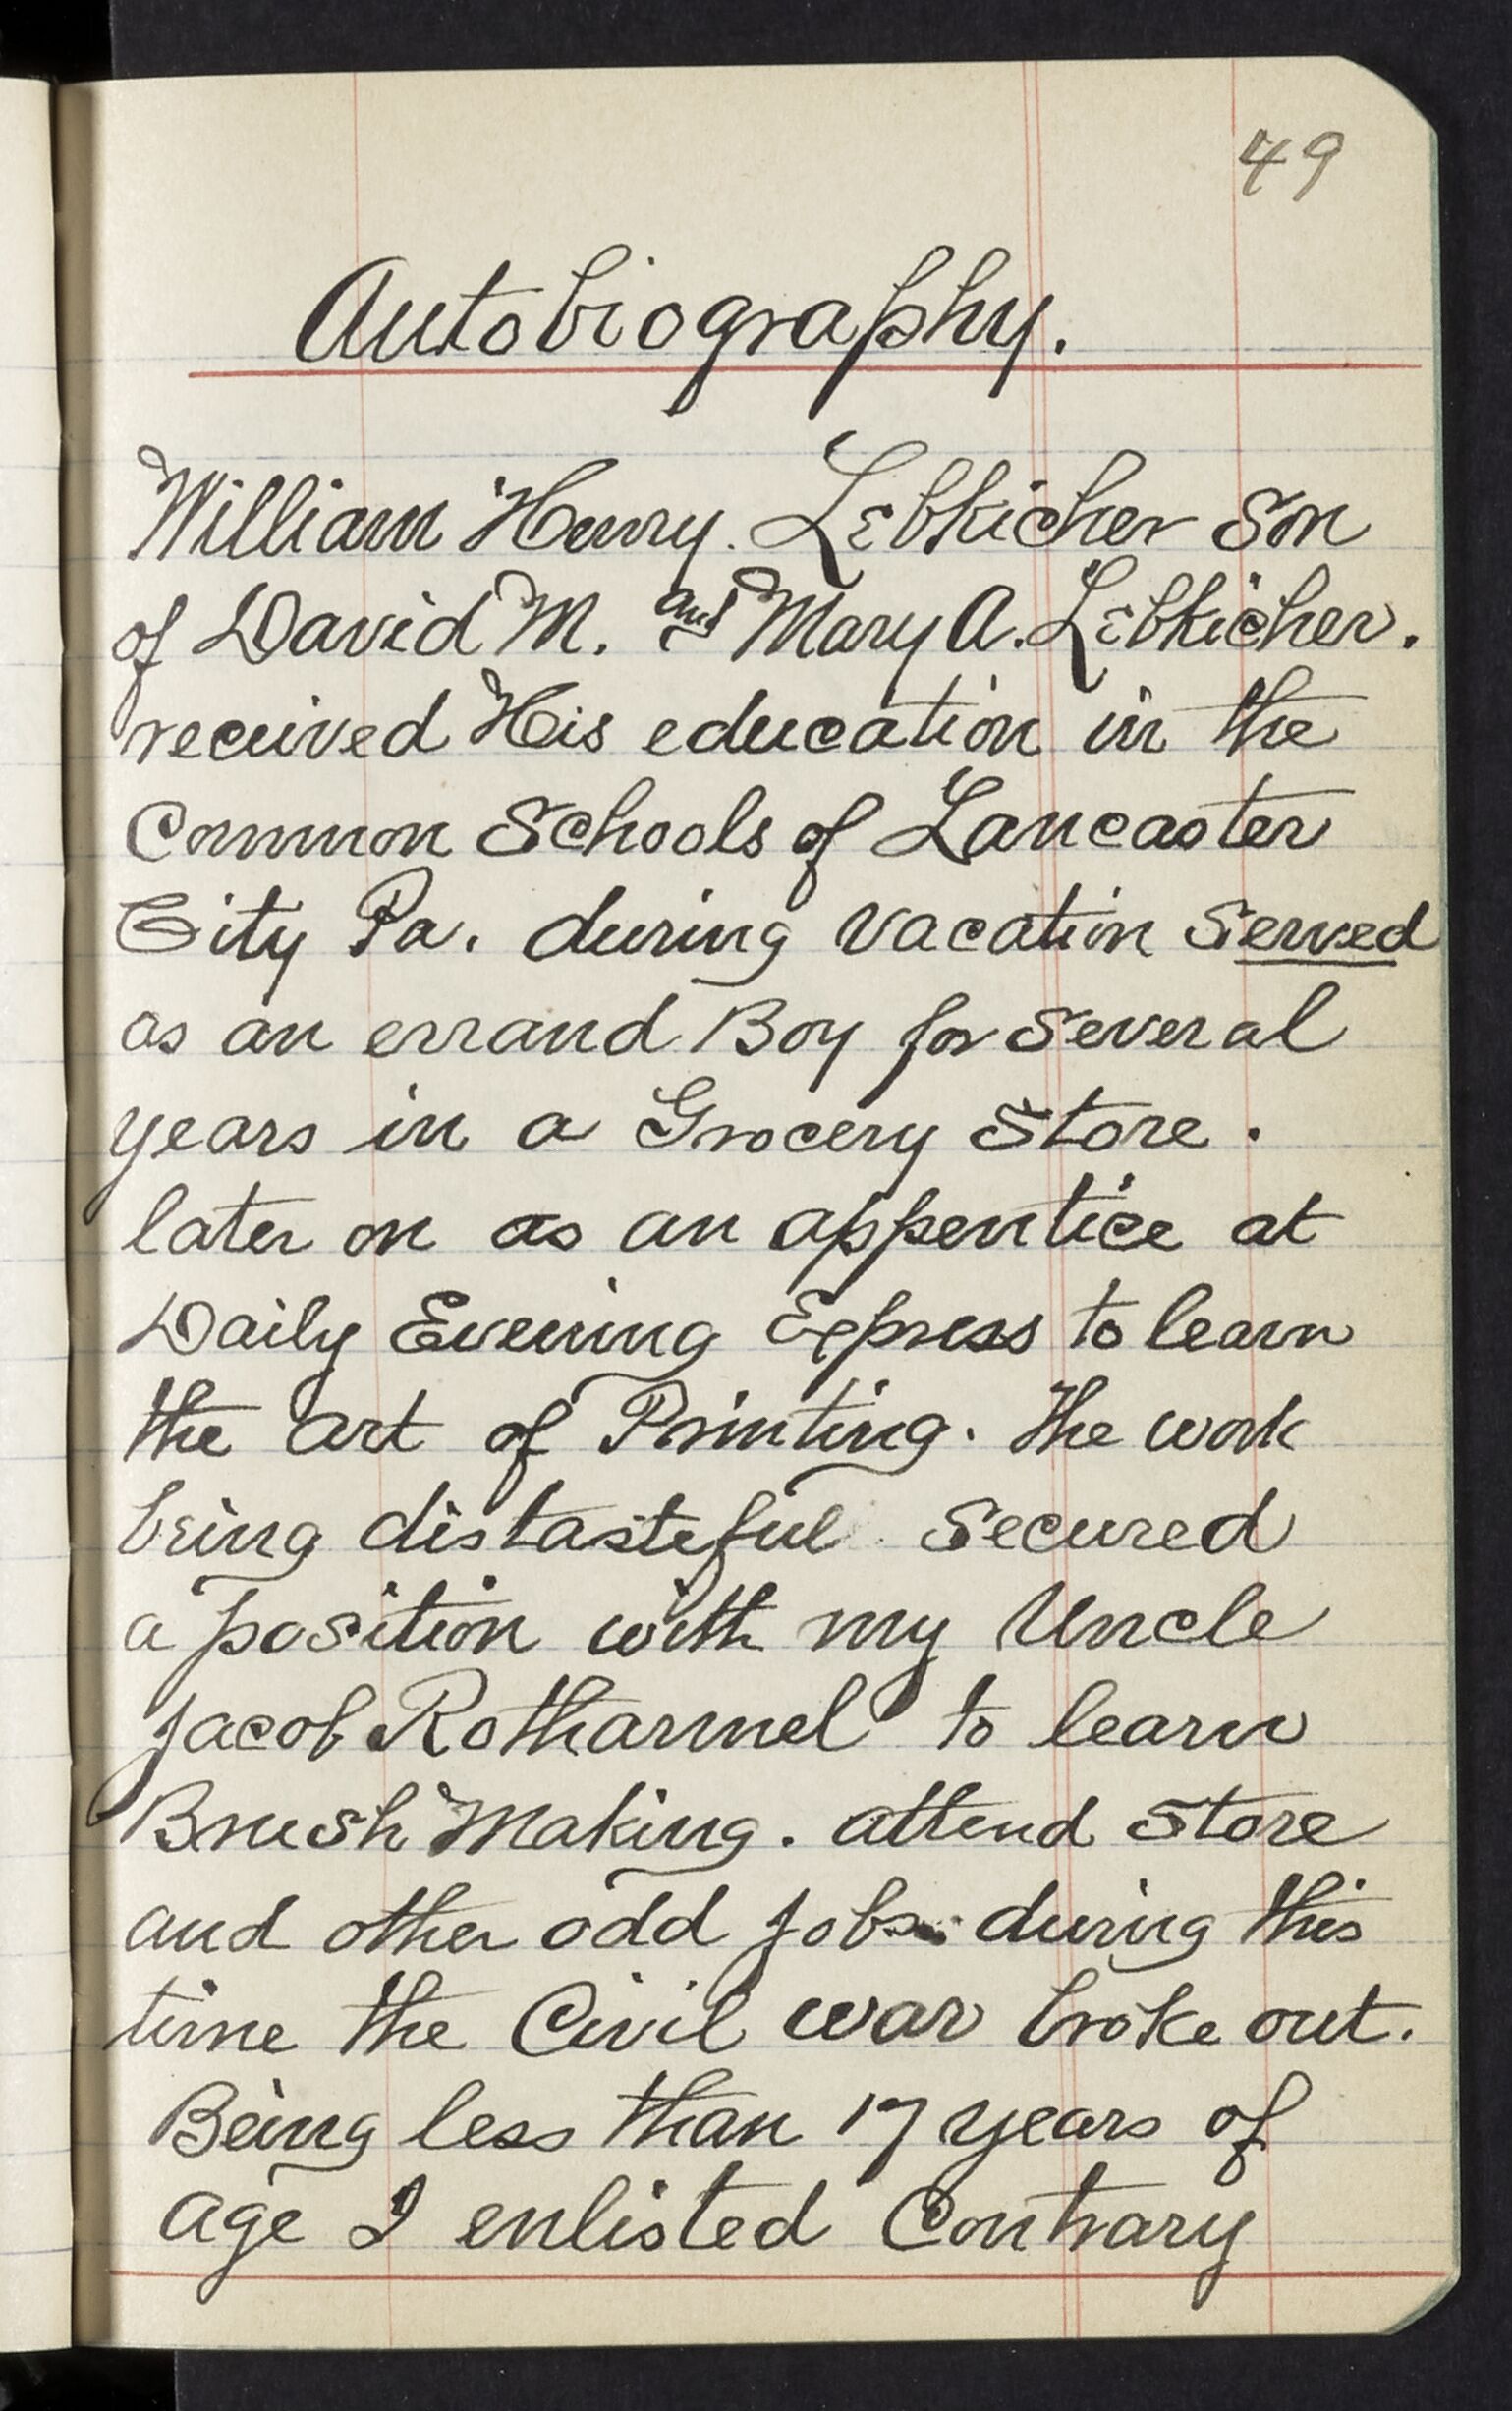 49
Autobiography.
William Henry. Lebkicher Son
of David M. and Mary A. Lebkicher.
received His education in the
Common Schools of Lancaster
City Pa. during vacation Served
as an errand Boy for Several
years in a Grocery Store.
later on as an appentice at
Daily Evening Express to learn
the art of Printing. The work
being distasteful Secured
a position with my Uncle
Jacob Rotharmel to learn
Brush Making. attend store
and other odd jobs. during this
time the Civil war broke out.
Being less than 17 years of
age I enlisted Contrary